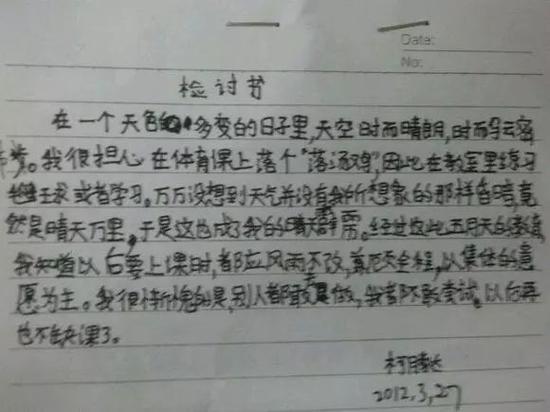 Date:
No:
检讨书
在一个天色多变的日子里,天空时而晴朗,时而乌云密
布。我很担心在体育课上落个“落汤鸡”,因此在教室里练习
球或者学习。万万没想到天气并没有我所想象的那样昏暗,竟
然是晴天万里,于是这也成了我的晴天霹雳。经过这
我知道以后要上课时,都应风雨不改,以集体的意
愿为主。我很惭愧的是,别人都敢做,我都不敢尝试。以后再
也不缺课了。
柯
2012,3,27